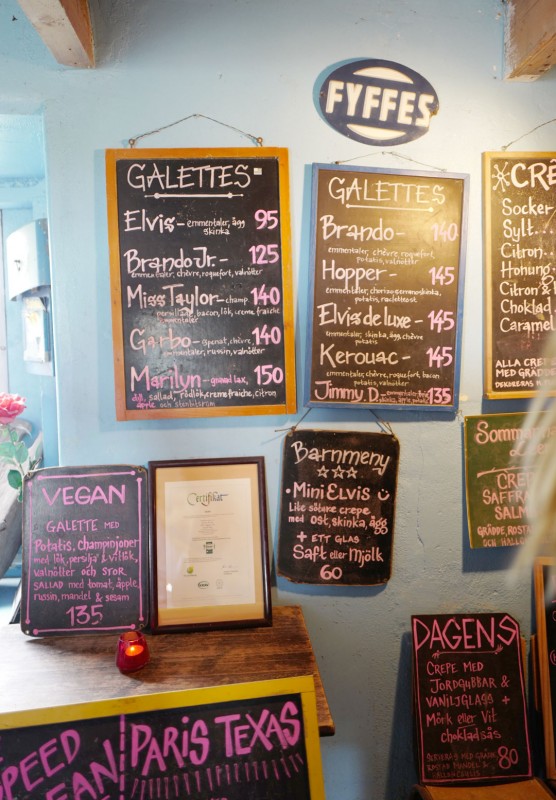 FYFFES
GALETTES
Elvis - emmentaler, ägg 95
skinka
Brando Jr. - 125
emmentaler, chèvre, roquefort, valnötter
Miss Taylor - champ. 140
parmaham, bacon, lök, creme fraiche
emmentaler
Garbo - spenat, chèvre 140
emmentaler, russin, valnötter
Marilyn - gravad lax, 150
dill, sallad, rödlök, creme fraiche, citron
äpple och
GALETTES
Brando - 140
emmentaler, chèvre, roquefort,
potatis, valnötter
Hopper - 145
emmentaler, chorizo, serranoskinka,
potatis, racletteost
Elvis de luxe - 145
emmentaler, skinka, ägg, chèvre
potatis
Kerouac - 145
emmentaler, chèvre, roquefort, bacon
potatis, valnötter
Jimmy D. - 135
skinka, äpple, potatis
CRÊ
Socker
Sylt...
Citron..
Honung
Citron &
Choklad
Caramel
ALLA CREP
MED GRÄDDE
VEGAN
GALETTE MED
Potatis, champinjoner
med lök, persilja & vitlök,
valnötter och STOR
SALLAD med tomat, äpple,
russin, mandel & sesam
135
Certifikat
Barnmeny
• Mini Elvis
Lite sötare crepe
med ost, skinka, ägg
+ ETT GLAS
Saft eller Mjölk
60
Sommar
CRE
SAFFRA
SALM
GRÄDDE, ROSTA
OCH HALLON
DAGENS
CREPE MED
JORDGUBBAR &
VANILJGLASS +
Mörk eller Vit
chokladsås
80
SPEED
EAN
PARIS TEXAS